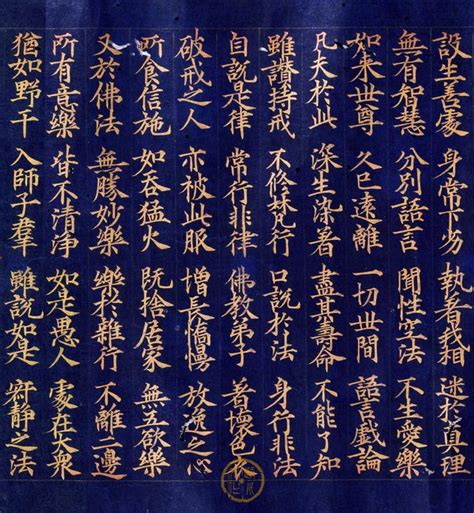 設生善處 身常下劣 執著我相 迷於真理
無有智慧 分別語言 聞性空法 不生愛樂
如来世尊 久已遠離 一切世間 語言戲論
凡夫於此 深生染著 盡其壽命 不能了知
雖讃持戒 不修梵行 口說於法 身行非法
自說是律 常行非律 佛教弟子 著壞色
破戒之人 亦被此服 增長憍慢 放逸之心
所食信施 如吞猛火 既捨居家 無五欲樂
又於佛法 無勝妙樂 樂於雜行 不離二邊
所有意樂 皆不清淨 如是愚人 處在大衆
猶如野干 入師子羣 雖說如是 寂靜之法